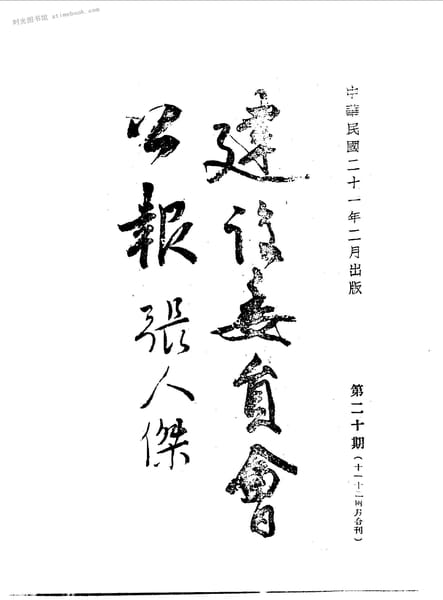 时光图书馆 xtimebook.com
中華民國二十一年二月出版
第二十期（十一十二兩月合刊）
建設委員會
公報 張人傑